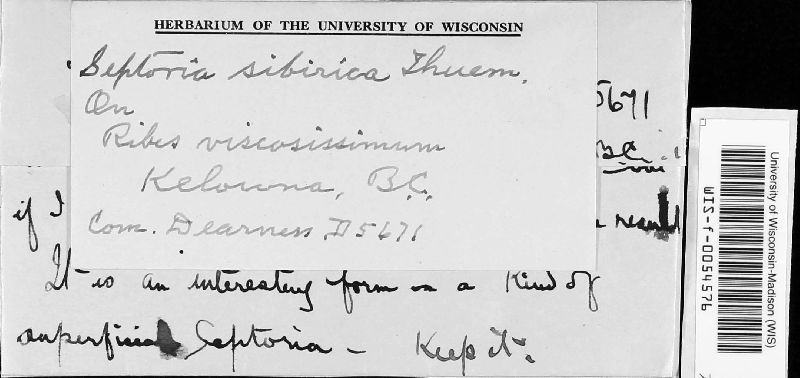 HERBARIUM OF THE UNIVERSITY OF WISCONSIN
Septoria sibirica Thuem.
On
Ribes viscosissimum
Kelowna, B.C.
Com. Dearness D5671
5671
B.C.
if I
result
It is an interesting form in a kind of
superficial Septoria - Keep it.
University of Wisconsin-Madison (WIS)
WIS-f-0054576